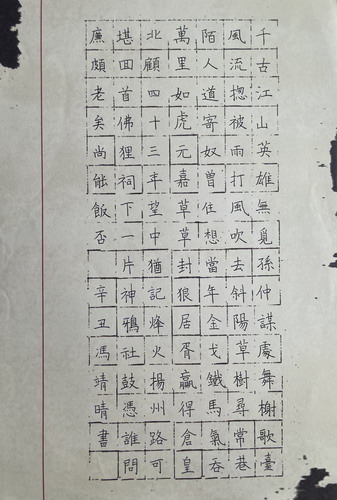 千古江山英雄無覓孫仲謀處舞榭歌臺
風流揔被雨打風吹去斜陽草樹尋常巷
陌人道寄奴曾住想當年金戈鐵馬氣吞
萬里如虎元嘉草草封狼居胥贏得倉皇
北顧四十三年望中猶記烽火揚州路可
堪回首佛狸祠下一片神鴉社鼓憑誰問
廉頗老矣尚能飯否 辛丑馮靖晴書